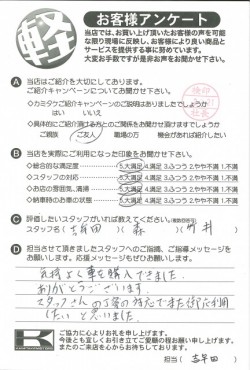 軽
お客様アンケート
当店では、お買い上げ頂いたお客様の声を可能
な限り現場に反映し、お客様により良い商品と
サービスを提供する事に努めています。
大変お手数ですが是非お声をお聞かせ下さい。
A 当店はご紹介を大切にしてあります。
ご紹介キャンペーンについてお聞かせ下さい。
◇カミタケご紹介キャンペーンのご説明はありましたでしょうか
はい いいえ
◇具体的にご紹介頂ける方とのご関係をお聞かせ頂けますでしょうか
ご親族 ご友人 職場の方 機会があれば紹介したい
B 当店を実際にご利用になった印象をお聞かせ下さい。
◇総合的な満足度 5.大満足 4.満足 3.ふつう 2.やや不満 1.不満
◇スタッフの対応 5.大満足 4.満足 3.ふつう 2.やや不満 1.不満
◇お店の雰囲気、清掃 5.大満足 4.満足 3.ふつう 2.やや不満 1.不満
◇納車時のお車の状態 5.大満足 4.満足 3.ふつう 2.やや不満 1.不満
C 評価したいスタッフがいれば教えてください。(複数回答可)
スタッフ名( 吉年田 )( 森 )( 竹井 )
D 担当させて頂きましたスタッフへのご指摘、ご応援メッセージを
お願いします。ご応援メッセージお待ちしております。
気持よく車を購入できました。
ありがとうございます。
スタッフさんの丁寧の対応でまた御利用
したいと思いました。
K
ご協力に心よりお礼を申し上げます。
今後とも宜しくお引き立てご愛顧の程お願い申し上げます。
またのご来店を心からお待ちしております。
担当( 吉年田 )